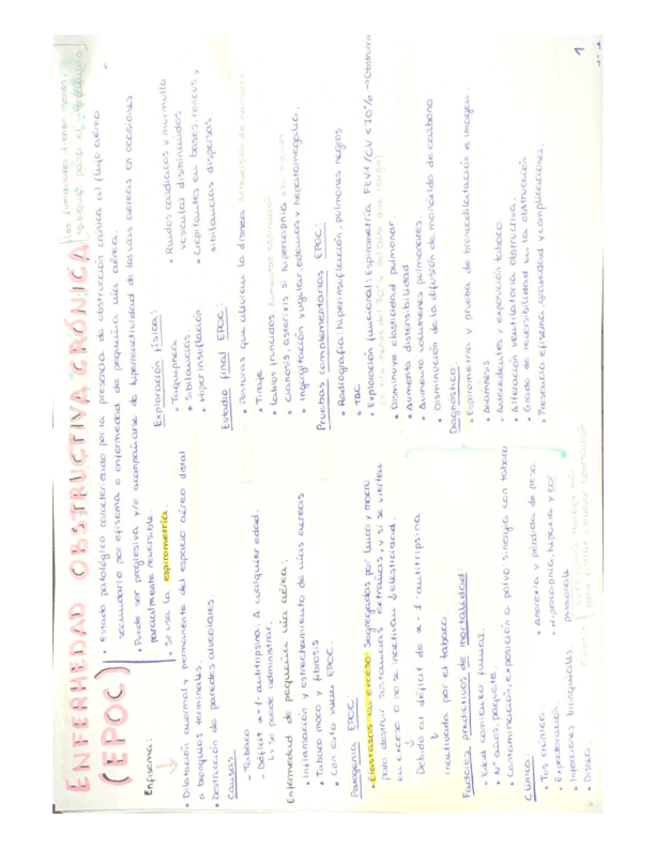 ENFERMEDAD OBSTRUCTIVA CRÓNICA
(EPOC)
los fumadores tienen menos
• Estado patológico caracterizado por la presencia de obstrucción crónica al flujo aéreo
secundario por efisema o enfermedad de pequeña vía aérea.
• Puede ser progresiva y/o acompañarse de hiperreactividad de las vías aéreas en ocasiones
parcialmente reversible.
• Se usa la espirometría.
Enfisema:
• Dilatación anormal y permanente del espacio aéreo distal
a bronquios terminales.
• Destrucción de paredes alveolares.
Causas
- Tabaco
- Déficit α-1-antitripsina. A cualquier edad.
↳ Se puede administrar.
Enfermedad de pequeña vía aérea:
• Inflamación y estrechamiento de vías aéreas
• Tabaco moco y fibrosis
• Con esto inicia EPOC.
Patogenia EPOC:
• Elastasas en exceso segregadas por leuco y macro
para destruir sustancias extrañas, y si se vierten
en exceso o no se inactivan ↓ elasticidad.
↓
Debido al déficit de α-1-antitripsina
↓
inactivada por el tabaco.
Factores predictivos de mortalidad:
• Edad comienzo fumar.
• Nº años, paquete.
• Contaminación, exposición a polvo: sinergia con tabaco
Clínica:
• Tos crónica.
• Expectoración.
• Infecciones bronquiales.
• Disnea.
• Anorexia y pérdida de peso
• Hipercapnia, hipoxia y cor
pulmonale
Exploración física:
• Taquipnea
• Sibilancias
• Hiperinsuflación
• Ruidos cardíacos y murmullo
vesicular disminuidos
• Crepitantes en bases, roncus y
sibilancias dispersas.
Estadio final EPOC:
• Posturas que alivian la disnea
• Tiraje
• Labios fruncidos
• Cianosis, asterixis si hipercapnia
• Ingurgitación yugular, edemas y hepatomegalia.
Pruebas complementarias EPOC:
• Radiografía: hiperinsuflación, pulmones negros
• TAC
• Exploración funcional: Espirometría FEV1/CV <70% →
• Disminuye elasticidad pulmonar.
• Aumenta distensibilidad
• Aumento volúmenes pulmonares
• Disminución de la difusión de monóxido de carbono.
Diagnóstico:
• Espirometría y prueba de broncodilatación e imagen.
• Anamnesis
• Antecedentes y exposición tabaco.
• Alteración ventilatoria obstructiva.
• Grado de reversibilidad en la obstrucción
• Presencia efisema, gravedad y complicaciones.
1